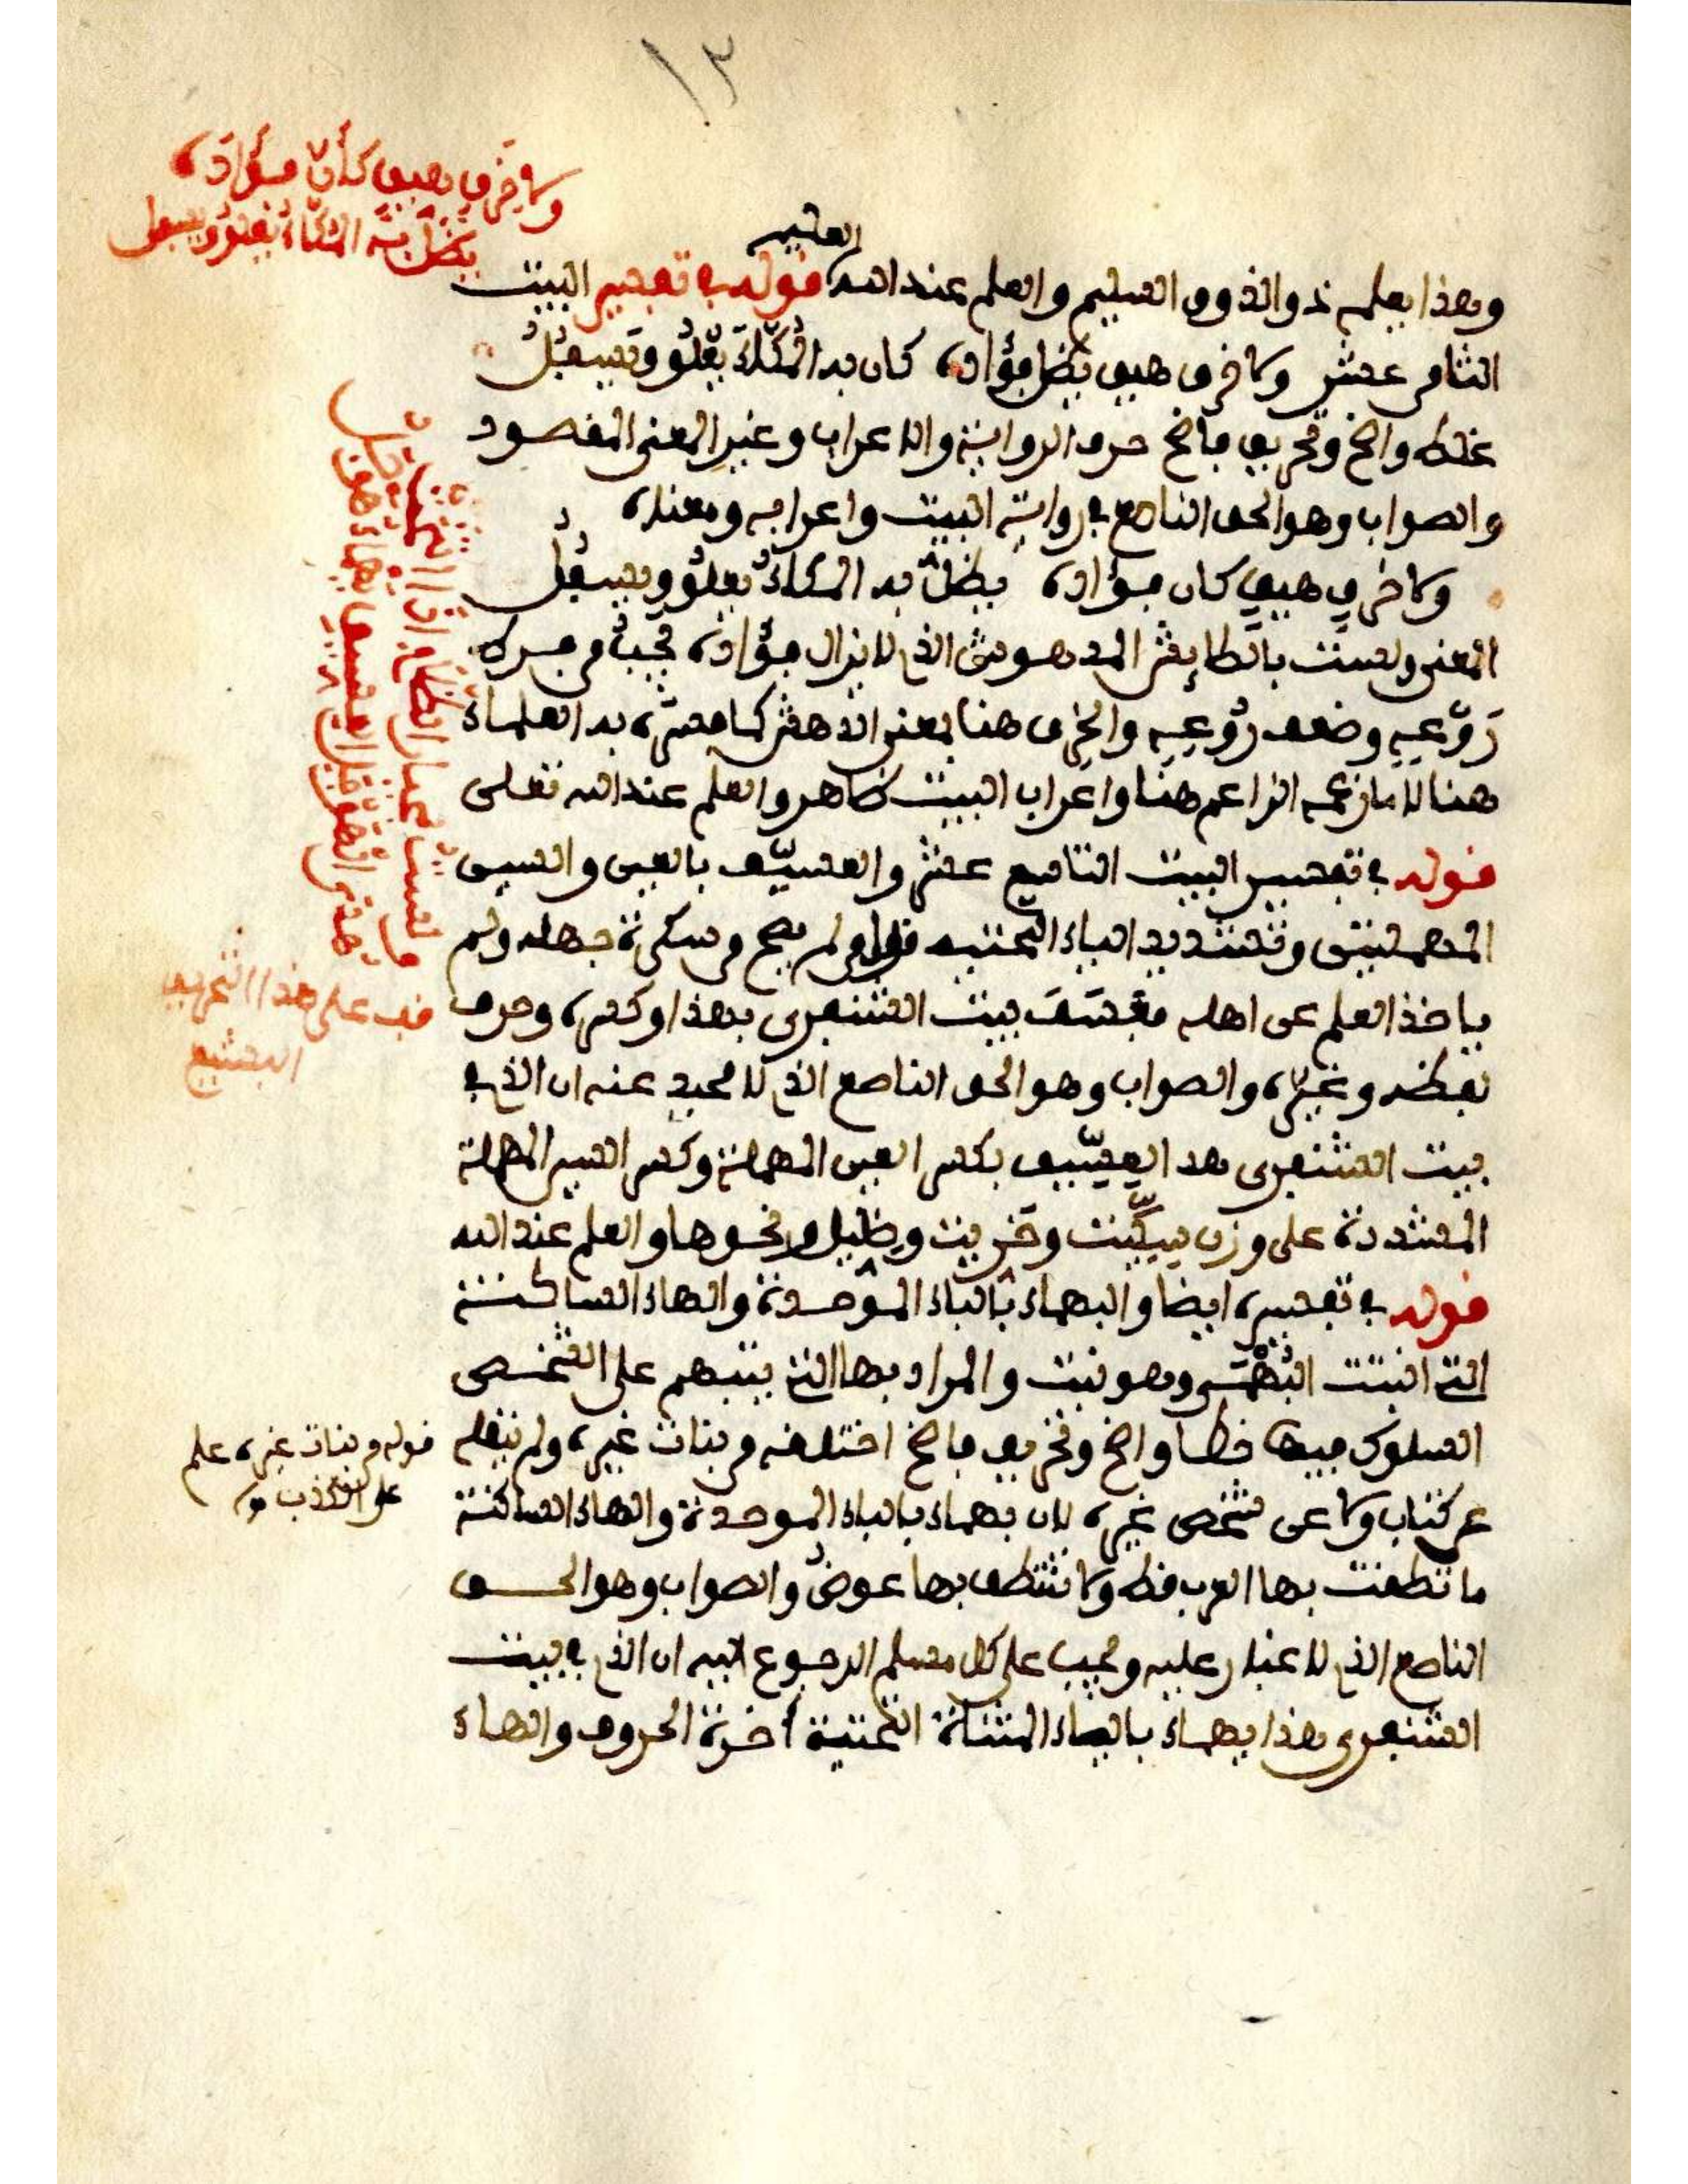 ١٣
ولا خرق هيق كأن فؤاده
يظل به المكاء يعلو ويسفل
العظيم
وهذا يعلمه ذو الذوق السليم والعلم عند الله قوله في تفسير البيت
الثامن عشر ولا خرق هيق يظل فؤاده كان به المكاء يعلو ويسفل
غلط واضح وتحريف فاضح حرف الرواية والاعراب وغير المعنى المقصود
والصواب وهو الحق الناصع في رواية البيت واعرابه ومعناه
ولا خرق هيق كان فؤاده يظل به المكاء يعلو ويسفل
المعنى ولست بالطائش المدهوش الذي لا يزال فؤاده يجب من
رَوْعِه وضعف رُوعِه والخرق هنا بمعنى الدهش كما فسره به العلماء
هنا لا ما زعمه الزاعم هنا واعراب البيت ظاهر والعلم عند الله تعلى
قوله في تفسير البيت التاسع عشر والعسيّف بالعين والسين
المهملتين وتشديد الياء التحتيه قول من لم يصح من سكرة جهله ولم
ياخذ العلم عن اهله فعَسَفَ بيت الشنفرى بهذا وكسره وحرف
لفظه وغيره والصواب وهو الحق الناصع الذي لا محيد عنه ان الذي في
بيت الشنفرى هذا العِسِّيف بكسر العين المهملة وكسر السين المهملة
المشددة على وزن سِكِّيت وخريت وضليل ونحوها والعلم عند الله
قوله في تفسيره ايضا والبهماء بالباء الموحدة والهاء الساكنة
التي انبتت البُهْمَى وهو نبت والمراد بها التي ينبهم على الشخص
السلوك فيها خطا واضح وتحريف فاضح اختلقه من بنات غيره ولم ينقله
عن كتاب ولا عن شخص غيره لان بهماء بالباء الموحدة والهاء الساكنة
ما نطقت بها العرب قط ولا تنطق بها عوض والصواب وهو الحق
الناصع الذي لا غبار عليه ويجب على كل مسلم الرجوع اليه ان الذي في بيت
الشنفرى هذا يهماء بالياء المثناة التحتية آخرة الحروف والهاء
ولست بمحيار الظلام اذا انتحت
هدى الهوجل العسيف يهماء هوجل
قف على هذا التحريف
البشيع
قوله من بنات غيره علم
على الكذب